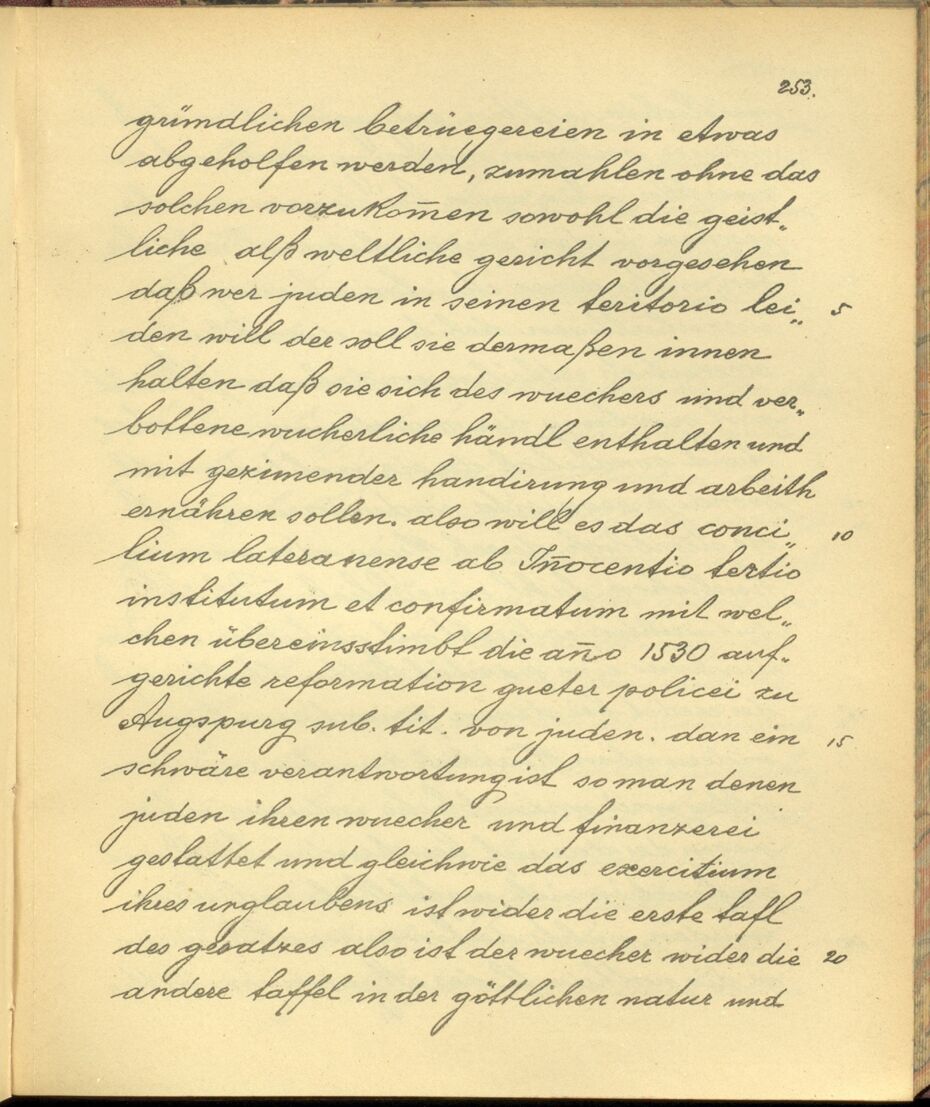 253.
gründlichen betrüegereien in etwas
abgeholfen werden, zumahlen ohne das
solchen vorzukom̄en sowohl die geist„
liche alß weltliche gericht vorgesehen
daß wer juden in seinen teritorio lei„ 5
den will der soll sie dermaßen innen
halten daß sie sich des wuechers und ver„
bottene wucherliche händl enthalten und
mit gezimender handirung und arbeith
ernähren sollen. also will es das conci„ 10
lium lateranense ab In̄ocentio tertio
institutum et confirmatum mit wel„
chen übereinsstimbt die an̄o 1530 auf„
gerichte reformation gueter policei zu
Augspurg sub. tit. von juden. dan ein 15
schwäre verantwortung ist so man denen
juden ihren wuecher und finanzerei
gestattet und gleichwie das exercitium
ihres unglaubens ist wider die erste tafl
des gesatzes also ist der wuecher wider die 20
andere taffel in der göttlichen natur und